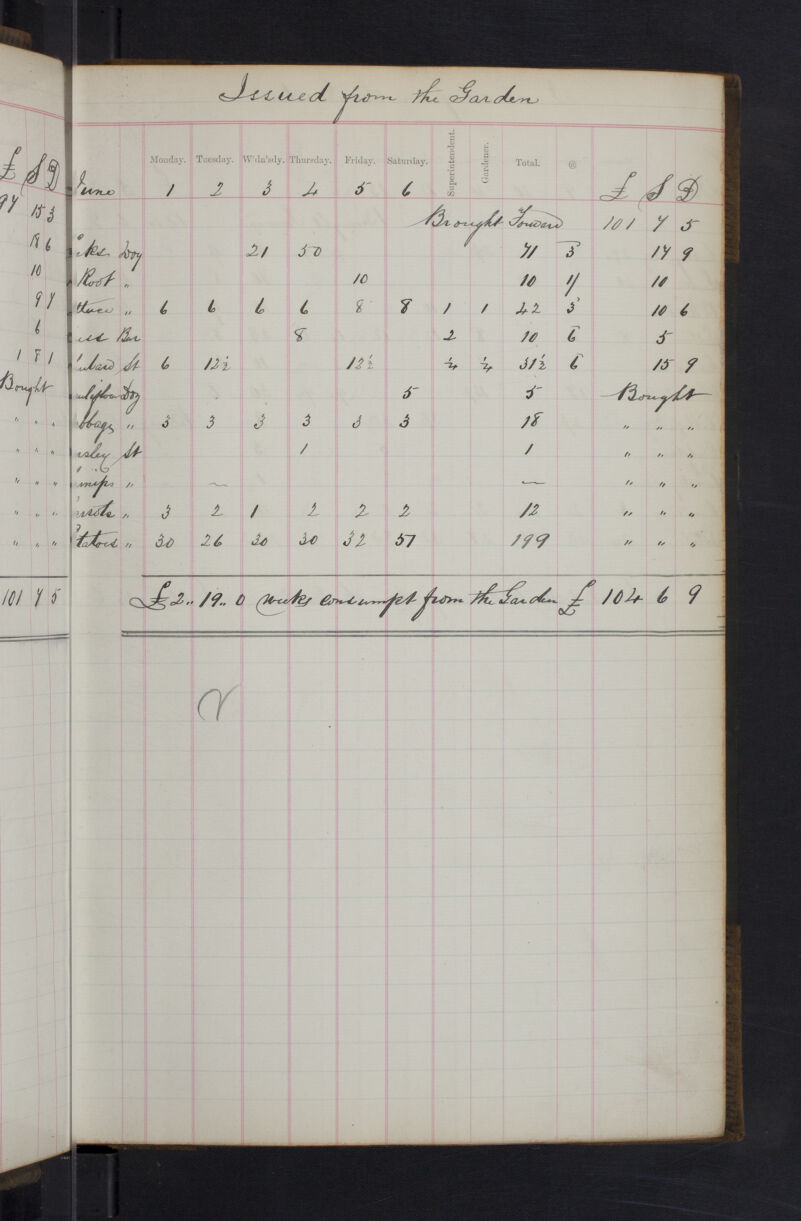 Issued from the Garden
£ S D
Monday. Tuesday. W'dn'sdy. Thursday. Friday. Saturday. Superintendent. Gardener. Total. @ £ S D
June 1 2 3 4 5 6
15 3 Brought Forward 101 7 5
18 6 Doz 21 50 71 3 17 9
10 Root " 10 10 1/ 10
9 7 ttuce " 6 6 6 6 8 8 1 1 42 3 10 6
6 ess 8 2 10 6 5
1 8 1 St 6 12½ 12½ ¼ ¼ 31½ 6 15 9
Bought Doz 5 5 Bought
" " " bbage " 3 3 3 3 3 3 18 " " "
" " " rsley St 1 1 " " "
" " " rnips " ~ — " " "
" " " rrots " 3 2 1 2 2 2 12 " " "
" " " tatoes " 30 26 30 30 32 51 199 " " "
101 7 5 £2 " 19 " 0 weeks consumpt from the Garden £ 104 6 9